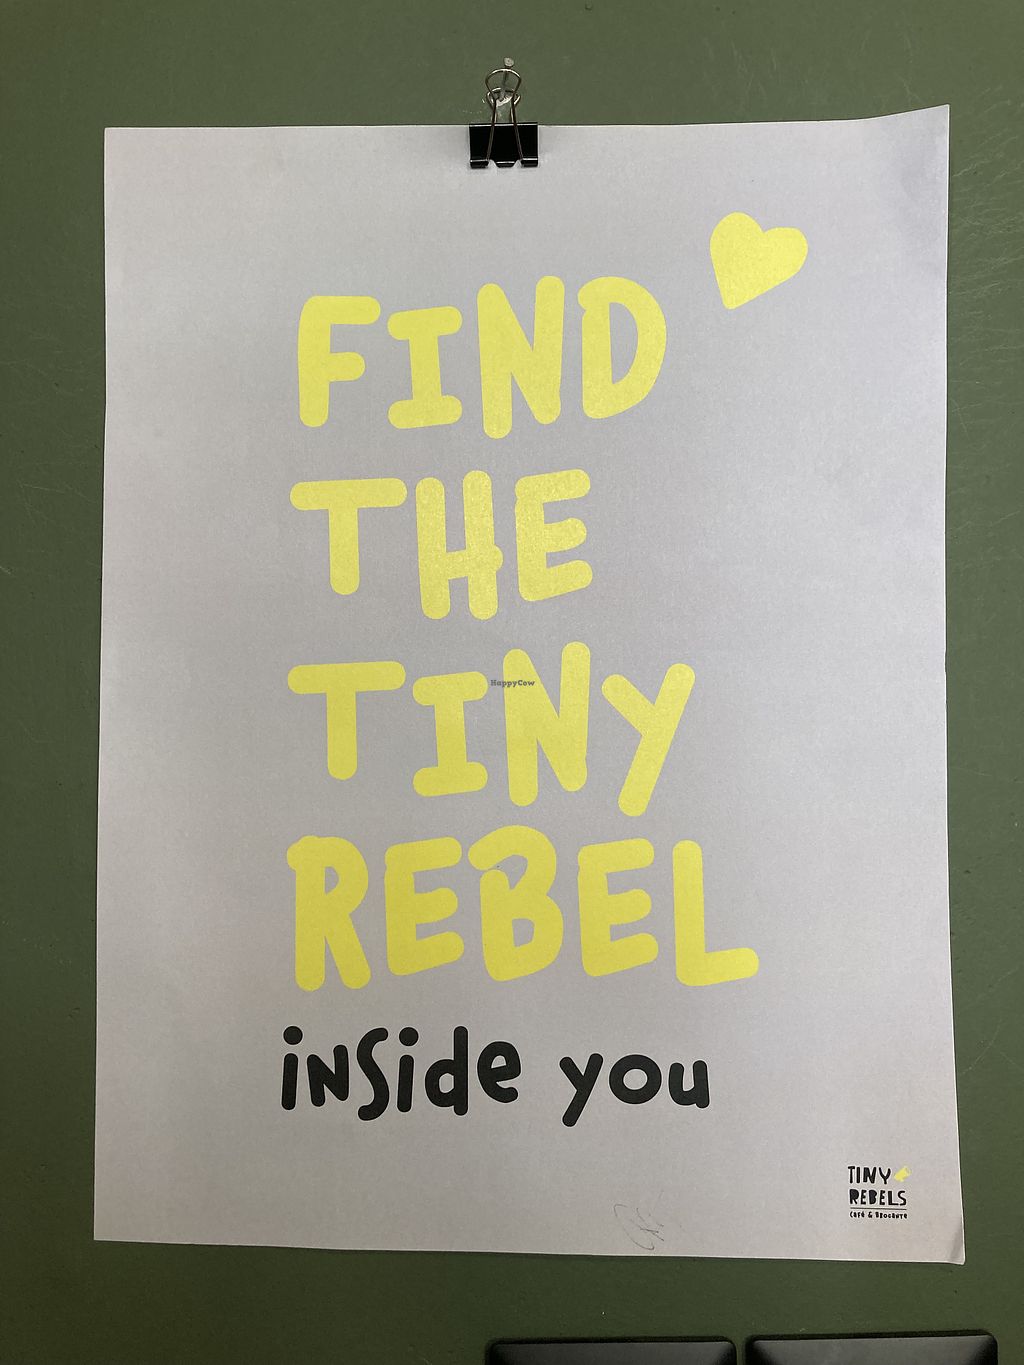 FIND
THE
TINY
HappyCow
REBEL
inside you
TINY
REBELS
Café & Brocante